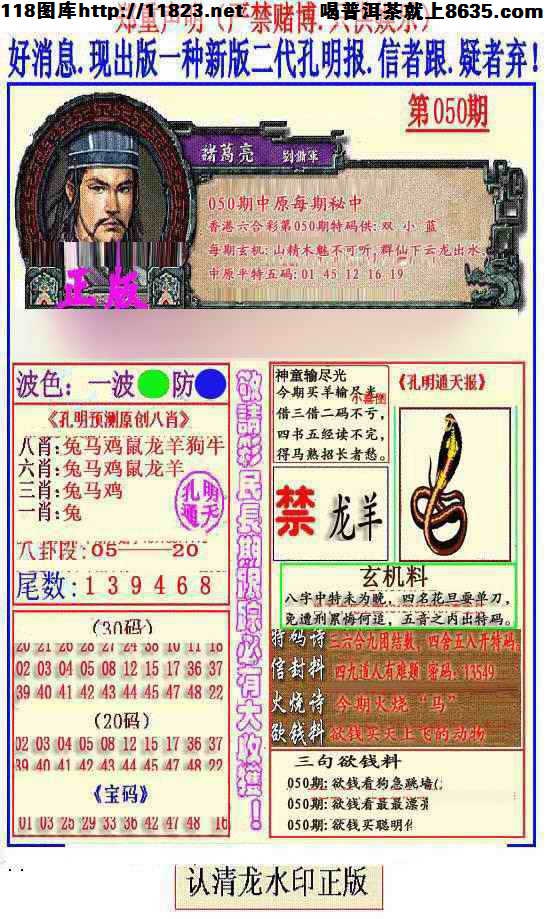 118图库http://11823.net 喝普洱茶就上8635.com
好消息.现出版一种新版二代孔明报.信者跟.疑者弃!
第050期
諸葛亮 劉備軍
050期中原每期秘中
香港六合彩第050期特码供: 双 小 蓝
每期玄机: 山精木魅不可听, 群仙下云龙出水
中原平特五码: 01 45 12 16 19
正版
波色: 一波 防
《孔明预测原创八肖》
八肖: 兔马鸡鼠龙羊狗牛
六肖: 兔马鸡鼠龙羊
三肖: 兔马鸡
一肖: 兔
孔明通天
八卦段: 05——20
尾数: 1 3 9 4 6 8
(30码)
20 21 26 28 27 24 38 10 11 18
02 03 04 05 08 12 15 17 36 37
39 40 41 42 43 44 45 47 48 22
(20码)
02 03 04 05 08 12 15 17 36 37
39 40 41 42 43 44 45 47 48 22
《宝码》
01 03 25 29 33 36 42 47 48 16
敬請彩民長期跟踪必有大收穫!
神童输尽光
今期买羊输尽光
借三借二码不亏,
四书五经读不完,
得马熟招长者愁。
《孔明通天报》
禁 龙羊
玄机料
八字中特未为晚, 四名花旦耍单刀,
免遭刑累悔何逗, 五音之内出特码。
特码诗 三六合九团结数, 四舍五入开特码
信封料 四九道人有难题 密码: 13549
火烧诗 今期火烧“马”
欲钱料 欲钱买天上飞的动物
三句欲钱料
050期: 欲钱看狗急跳墙(
050期: 欲钱看最最潇
050期: 欲钱买聪明
认清龙水印正版